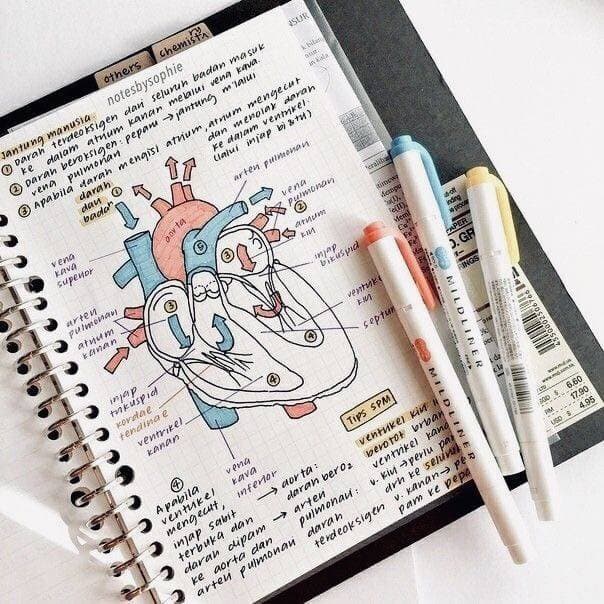 others
chemistry
notesbysophie
jantung manusia
① Darah terdeoksigen dari seluruh badan masuk
ke dalam atrium kanan melalui vena kava.
② Darah beroksigen: pepam → jantung m'lalui
vena pulmonari
③ Apabila darah mengisi atrium, atrium mengecut
dan menolak darah
ke dalam ventrikel
(lalui injap b & tu)
darah
dari
badan
①
arteri pulmonari
vena
pulmonari
②
atrium
kiri
injap
bikuspid
ventrikel
kiri
septum
aorta
⑤
③
③
④
④
vena
kava
superior
arteri
pulmonari
atrium
kanan
injap
trikuspid
kordae
tendinae
ventrikel
kanan
vena
kava
inferior
TIPS SPM
ventrikel kiri
berotot
ventrikel kanan
v. kiri → perlu pam
drh ke seluruh
v. kanan →
pam ke
④
Apabila
ventrikel
mengecut,
injap sabit
terbuka dan
darah dipam
ke aorta dan
arteri pulmonari
→ aorta:
darah berO2
→ arteri
pulmonari:
darah
terdeoksigen
MILDLINER
MILDLINER
6.60
17.90
4.95